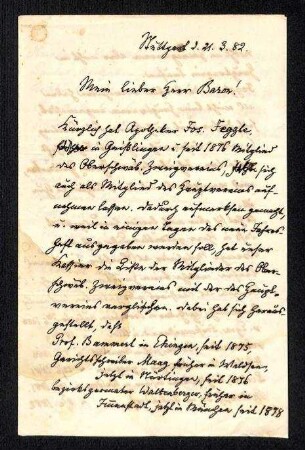 Stuttgart d. 21. 3. 82.
Mein lieber Herr Baron!
Kürzlich hat Apotheker Jos.
in Geislingen u. seit 1876 Mitglied
des Oberschwäb. Zweigvereins, sich
auch als Mitglied des Hauptvereins auf-
nehmen lassen. Dadurch aufmerksam gemacht,
u. weil in einigen Tagen das neue Jahres-
heft ausgegeben werden soll, hat unser
Kassier die Liste der Mitglieder des Ober-
schwäb. Zweigvereins mit der des Haupt-
vereins verglichen. Dabei hat sich heraus-
gestellt, daß
Prof. Bammert in Ehingen, seit 1875,
Gerichtsschreiber Maag, früher in Waldsee,
jetzt in Nürtingen, seit 1876
Bezirksgeometer Wattenberger, früher in
jetzt in München seit 1878